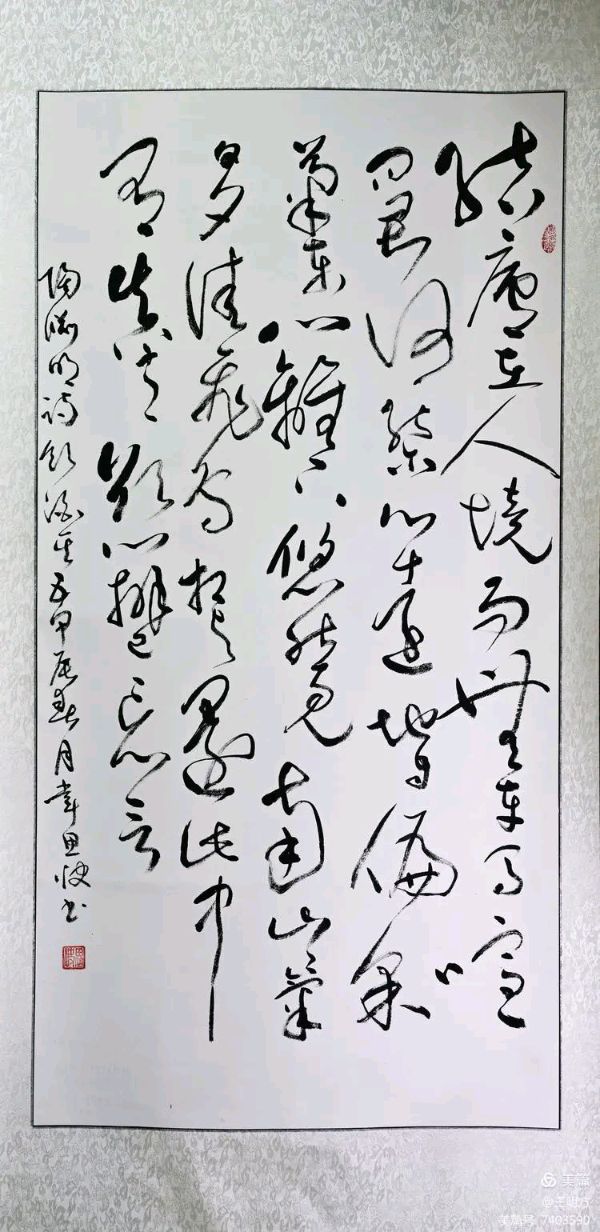 結廬在人境而無車馬喧
問君何能爾心遠地自偏采
菊東籬下悠然見南山山氣
日夕佳飛鳥相與還此中
有真意欲辨已忘言
陶淵明詩飲酒其五甲辰春月
美篇
美篇号 7403590